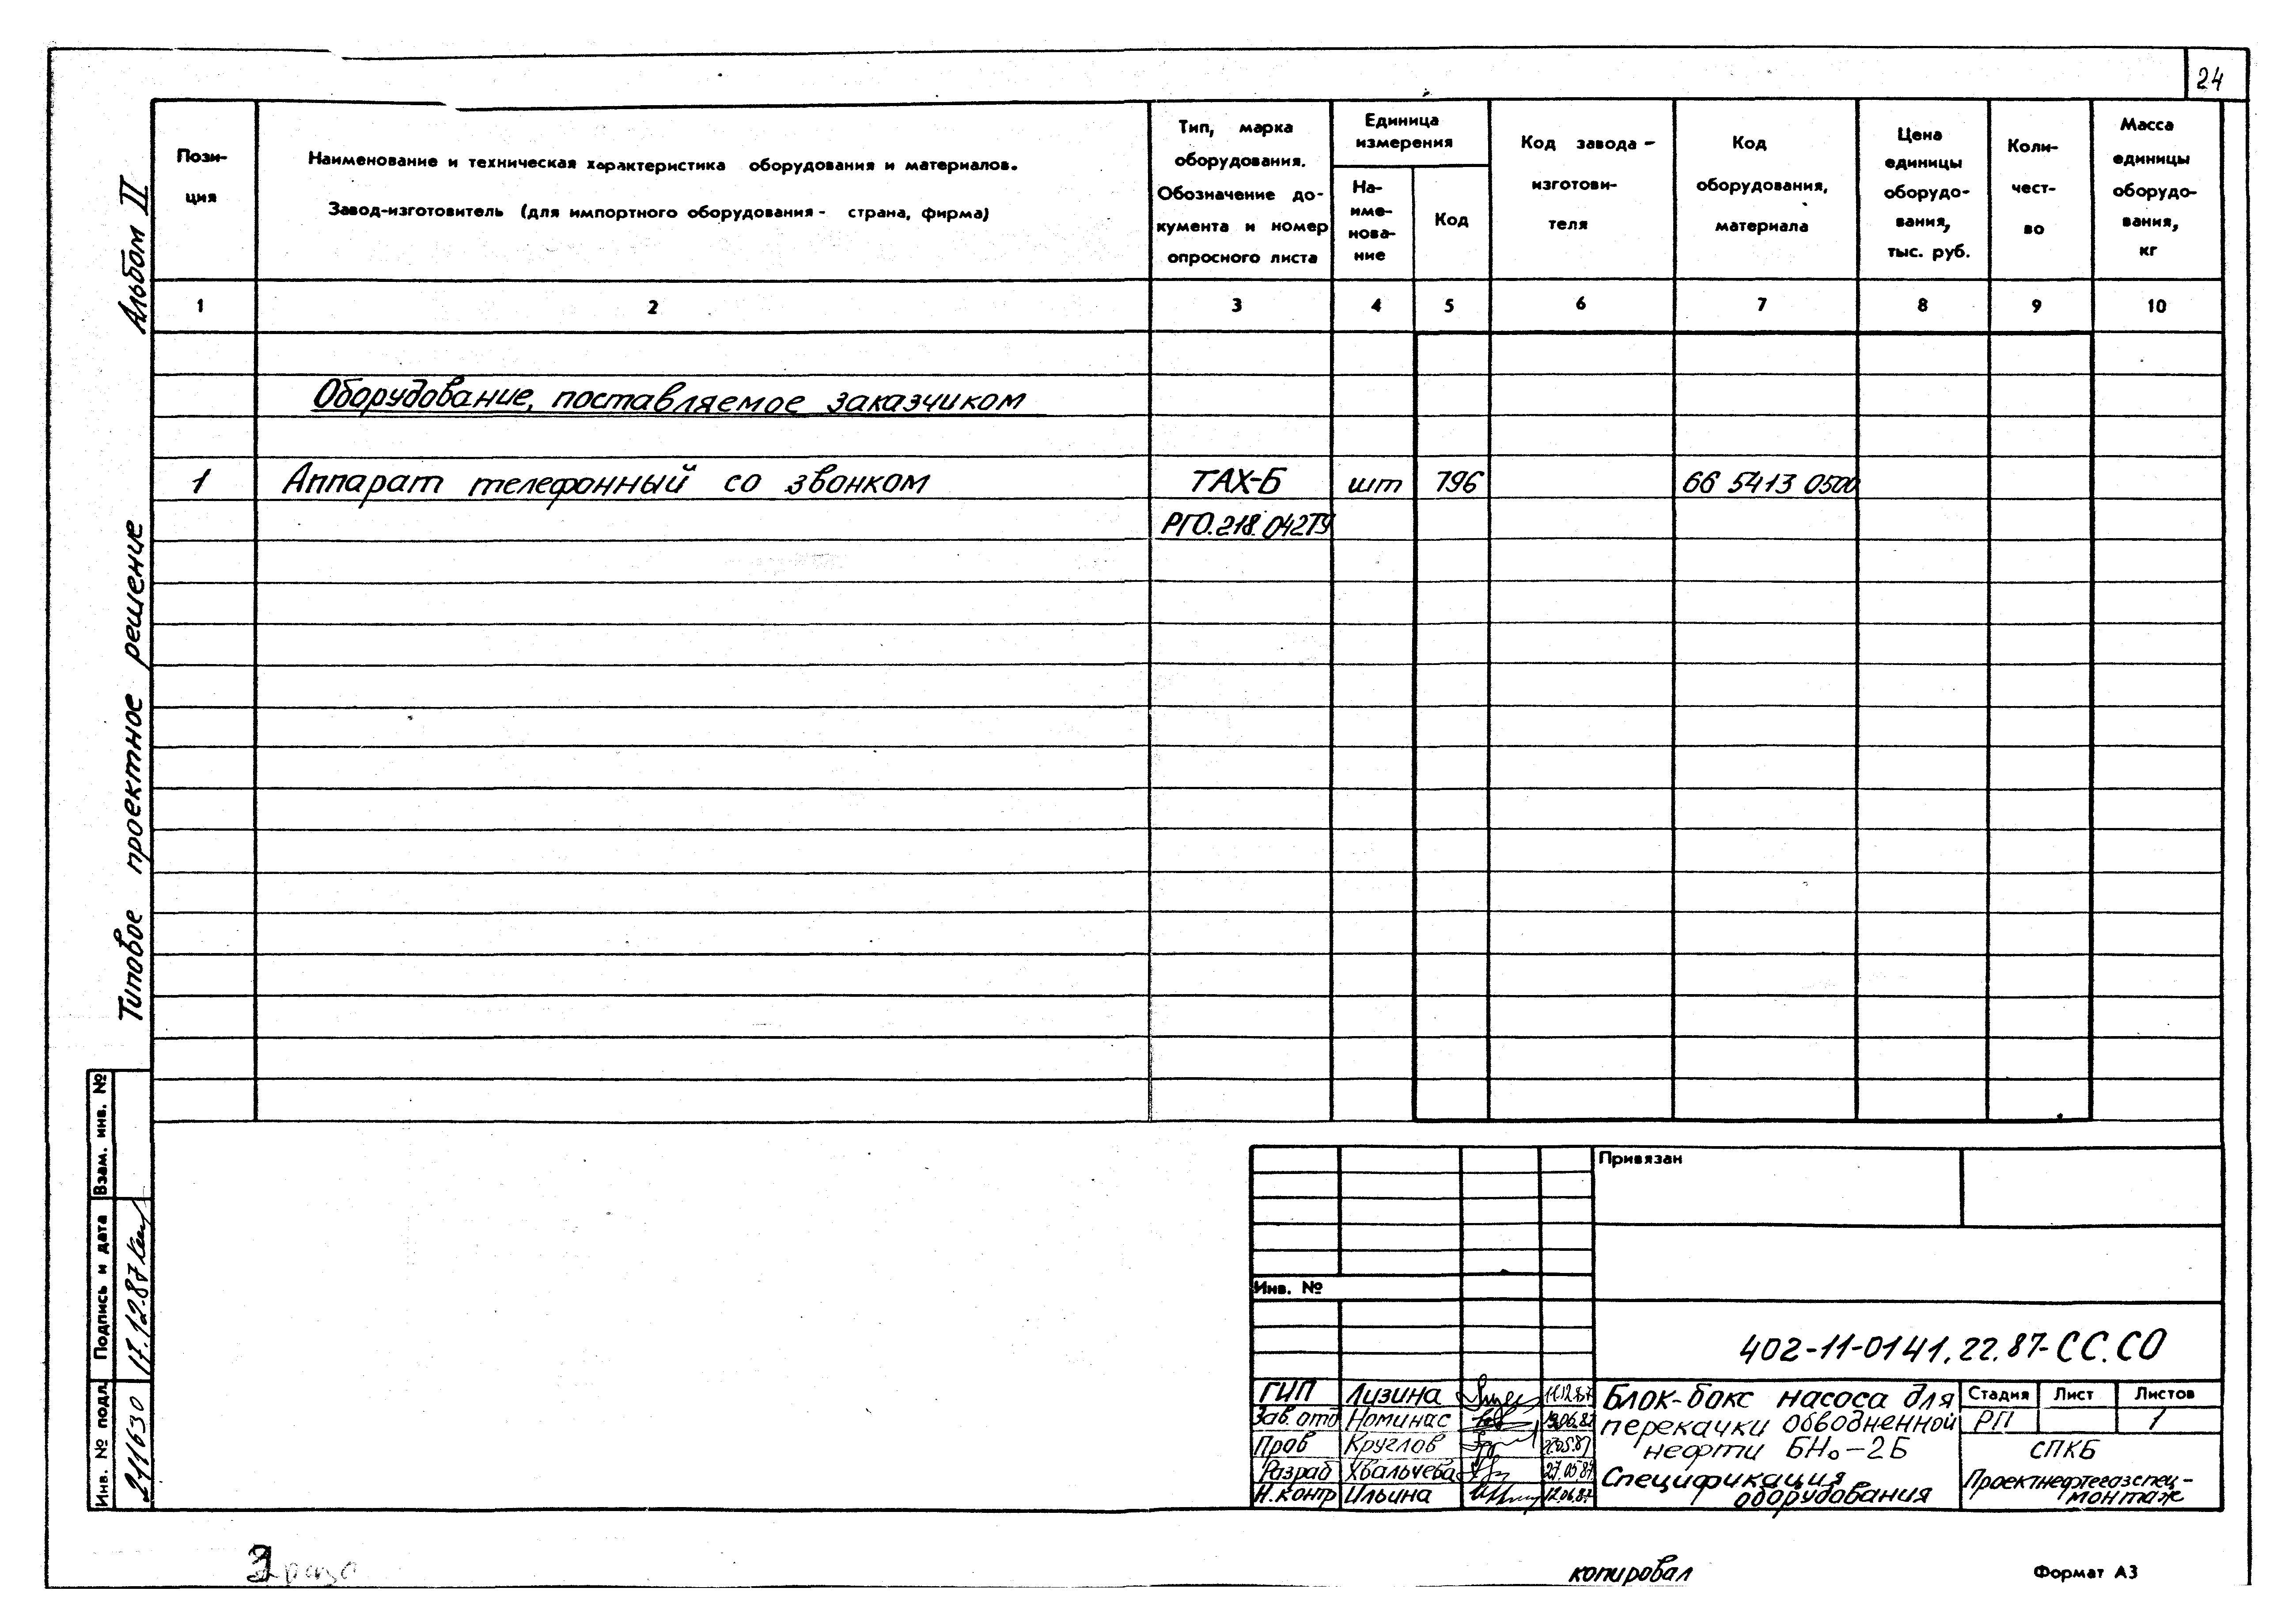 24
Пози-
ция
Наименование и техническая характеристика оборудования и материалов.
Завод-изготовитель (для импортного оборудования - страна, фирма)
Тип, марка
оборудования.
Обозначение до-
кумента и номер
опросного листа
Единица
измерения
На-
име-
нова-
ние
Код
Код завода -
изготови-
теля
Код
оборудования,
материала
Цена
единицы
оборудо-
вания,
тыс. руб.
Коли-
чест-
во
Масса
единицы
оборудо-
вания,
кг
1 2 3 4 5 6 7 8 9 10
Оборудование, поставляемое заказчиком
1 Аппарат телефонный со звонком ТАХ-Б шт 796 66 5413 0500
РГО.218.042ТУ
Альбом II
Типовое проектное решение
Взам. инв. №
Подпись и дата
17.12.87
Инв. № подл.
Привязан
Инв. №
402-11-0141.22.87-СС.СО
ГИП Лизина 11.12.87
Зав. отд Номинас
Пров Круглов
Разраб Хвальчева 27.05.87
Н.контр Ильина 12.06.87
Блок-бокс насоса для
перекачки обводненной
нефти БНо-2Б
Спецификация
оборудования
Стадия Лист Листов
РП 1
СПКБ
Проектнефтегазспец-
монтаж
копировал
Формат А3